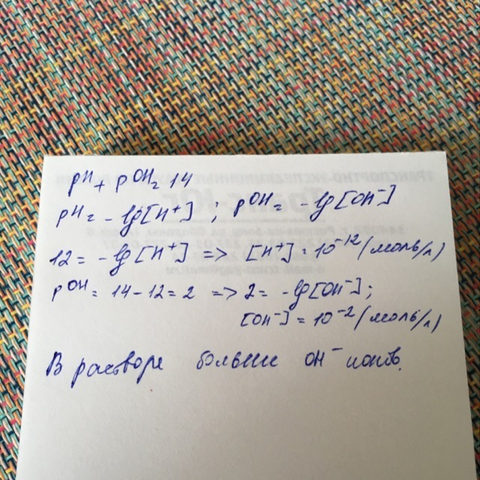 pH + pOH = 14
pH = - lg[H⁺] ; pOH = - lg[OH⁻]
12 = - lg[H⁺] => [H⁺] = 10⁻¹² (моль/л)
pOH = 14 - 12 = 2 => 2 = - lg[OH⁻];
[OH⁻] = 10⁻² (моль/л)
В растворе больше OH⁻ ионов.